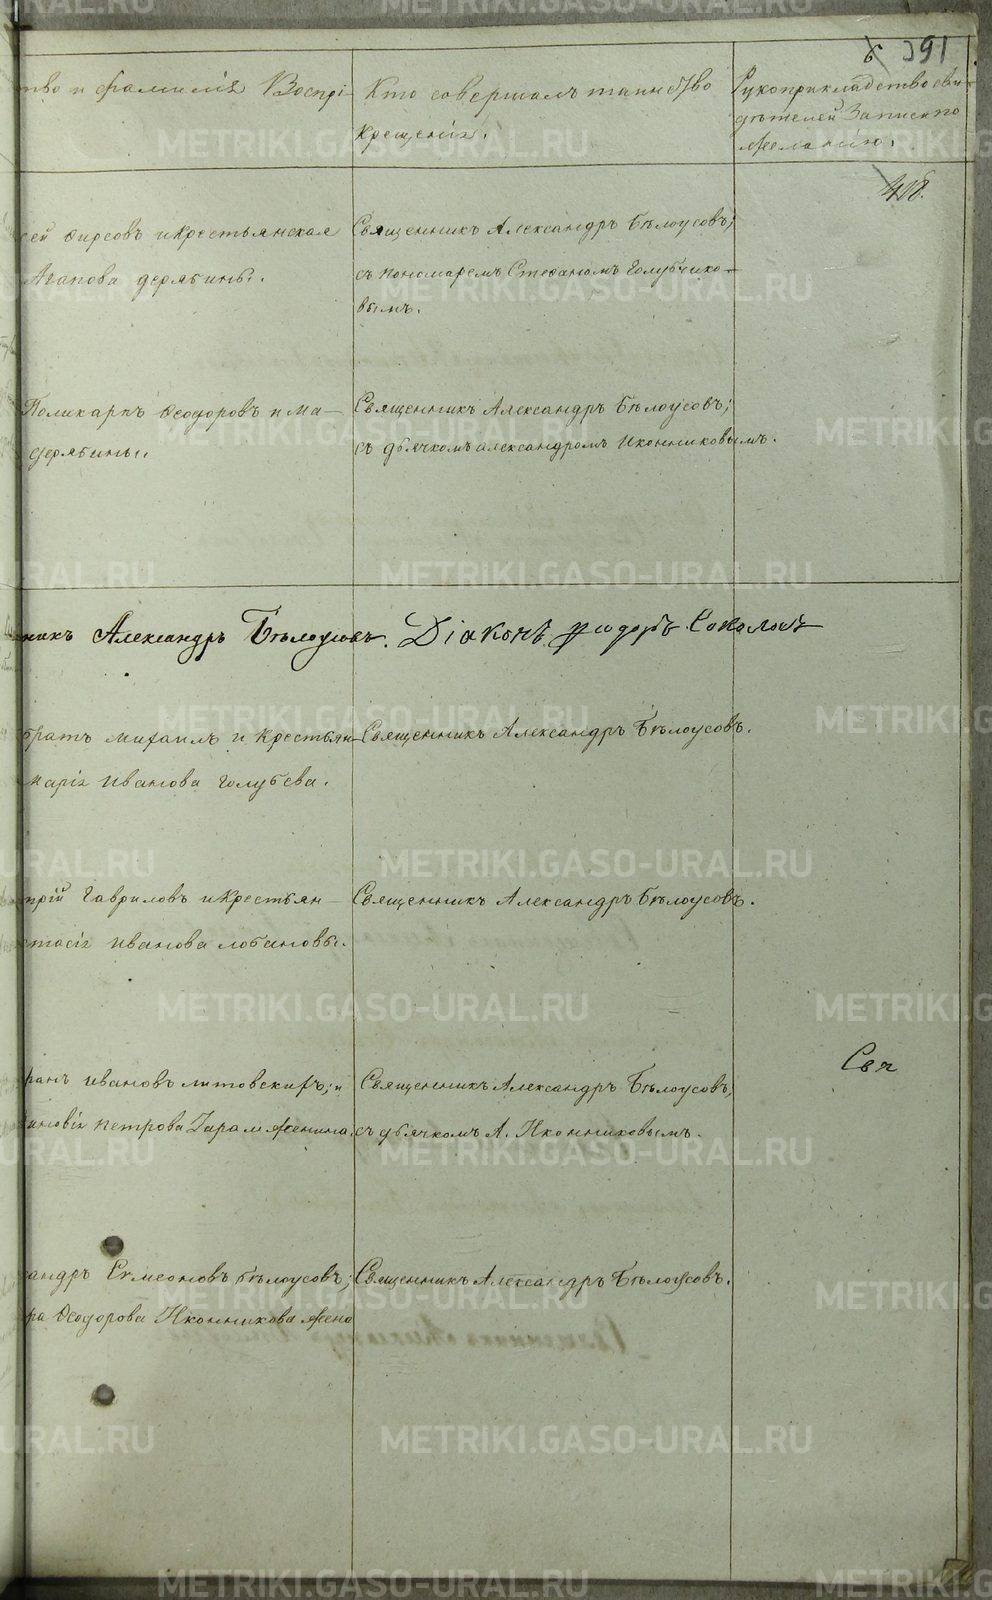 6 391
тво и фамилія Воспрі-
Кто совершалъ таинство
крещенія.
Рукоприкладство сви-
дѣтелей записи по
желанію.
408.
сей Фирсовъ и крестьянская
Агапова Дерябины.
Священникъ Александръ Бѣлоусовъ;
съ пономаремъ Стефаномъ Голубчико-
вымъ.
Поликарпъ Ѳеодоровъ и Ма-
Дерябины.
Священникъ Александръ Бѣлоусовъ;
съ дьячкомъ Александромъ Иконниковымъ.
никъ Александръ Бѣлоусовъ. Діаконъ Ѳеодоръ Соколовъ
братъ Михаилъ и крестьян-
Марія Иванова Голубева.
Священникъ Александръ Бѣлоусовъ.
трій Гавриловъ и крестьян-
стасія Иванова Лобановы.
Священникъ Александръ Бѣлоусовъ.
Ивановъ Литовскихъ; и
Петрова
Священникъ Александръ Бѣлоусовъ,
съ дьячкомъ А. Иконниковымъ.
Свя
сандръ Симеоновъ Бѣлоусовъ;
ра Ѳеодорова Иконникова жена
Священникъ Александръ Бѣлоусовъ.
METRIKI.GASO-URAL.RU